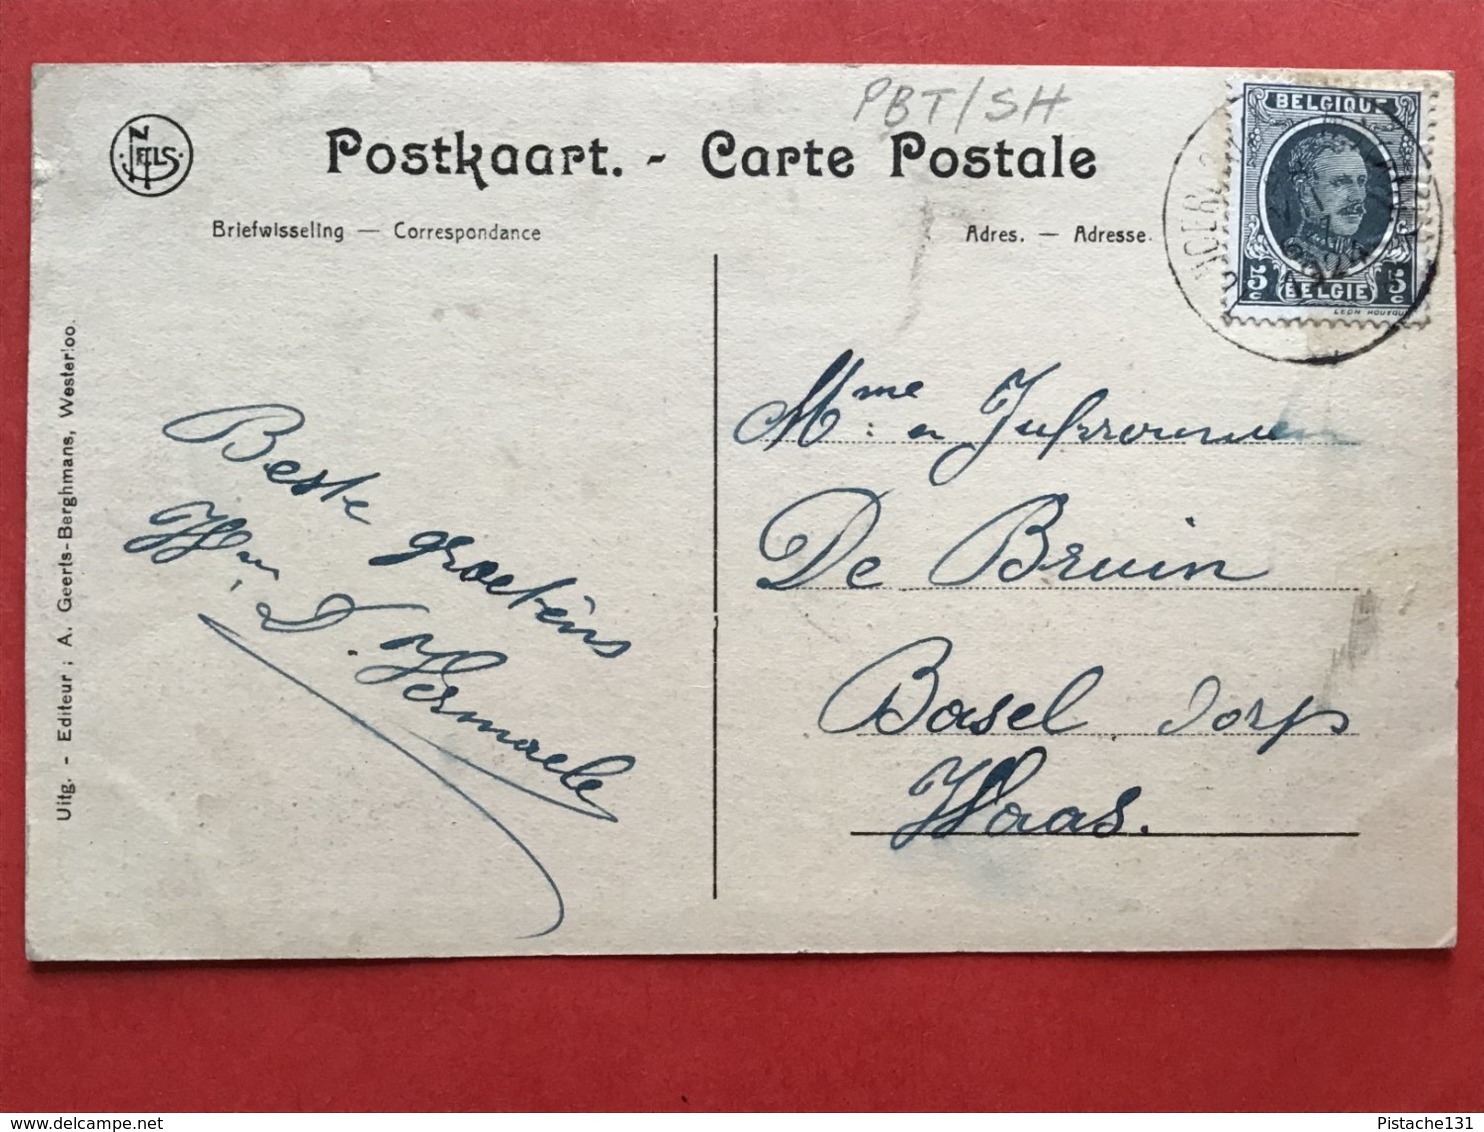 PBT/SH
NELS
Postkaart. - Carte Postale
Briefwisseling — Correspondance
Adres. — Adresse.
BELGIQUE
1924
5c BELGIE 5c
Uitg. - Editeur : A. Geerts-Berghmans, Westerloo.
Beste groetens
D. Vermaele
Mme: en Jufrouwen
De Bruin
Basel dorp
Waas.
delcampe.net
Pistache131